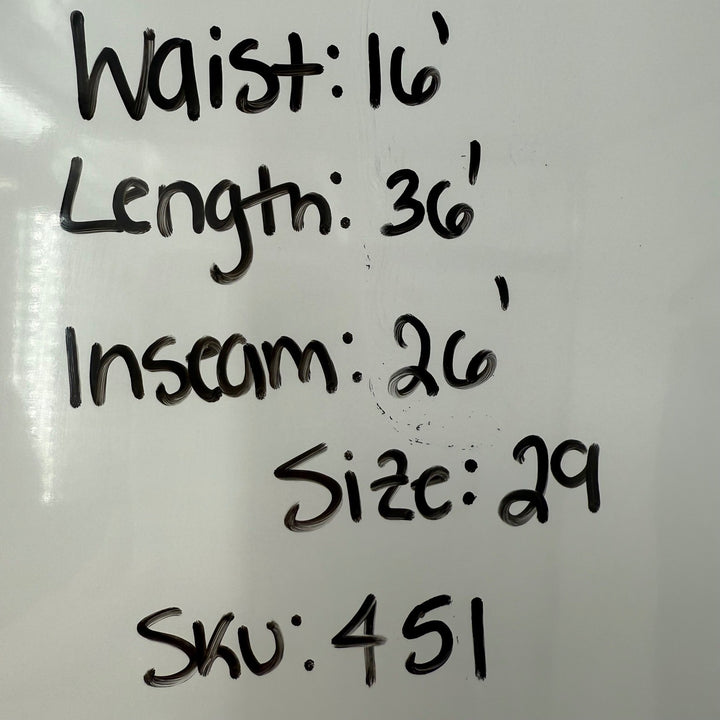 Waist: 16'
Length: 36'
Inseam: 26'
Size: 29
SKU: 451